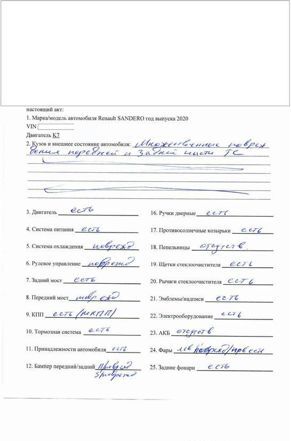 настоящий акт:
1. Марка/модель автомобиля Renault SANDERO год выпуска 2020
VIN
Двигатель К7
2. Кузов и внешнее состояние автомобиля: Множественные повреж
дения передней и задней части ТС
3. Двигатель есть
4. Система питания есть
5. Система охлаждения поврежд
6. Рулевое управление поврежд
7. Задний мост есть
8. Передний мост поврежд
9. КПП есть (МКПП)
10. Тормозная система есть
11. Принадлежности автомобиля есть
12. Бампер передний/задний поврежд
поврежд
16. Ручки дверные есть
17. Противосолнечные козырьки есть
18. Пепельницы отсутств
19. Щетки стеклоочистителя есть
20. Рычаги стеклоочистителя есть
21. Эмблемы/надписи есть
22. Электрооборудование есть
23. АКБ отсутств
24. Фары лев поврежд/прав есть
25. Задние фонари есть